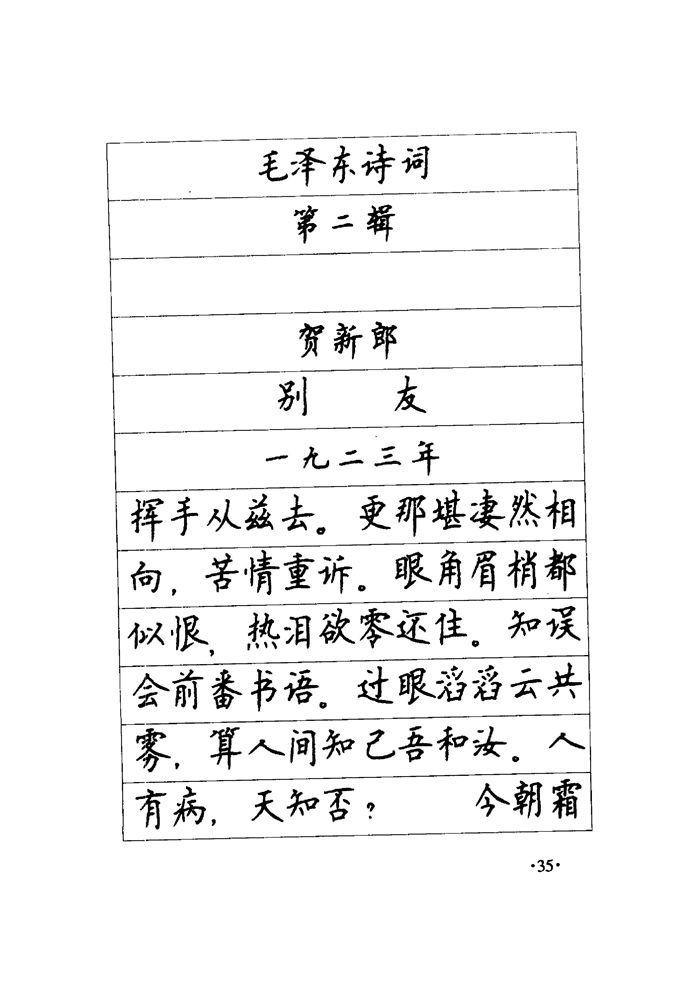 毛泽东诗词
第二辑
贺新郎
别 友
一九二三年
挥手从兹去。更那堪凄然相
向，苦情重诉。眼角眉梢都
似恨，热泪欲零还住。知误
会前番书语。过眼滔滔云共
雾，算人间知己吾和汝。人
有病，天知否？ 今朝霜
·35·